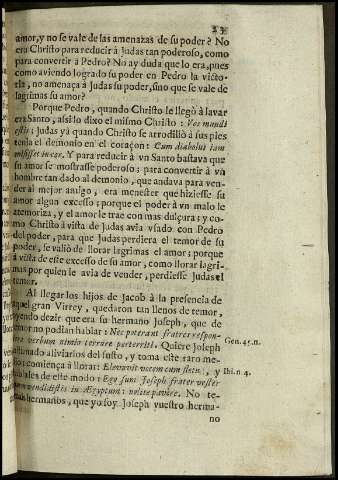 23
amor, y no se vale de las amenazas de su poder? No
era Christo para reducir à Judas tan poderoso, como
para convertir à Pedro? No ay duda que lo era, pues
como aviendo logrado su poder en Pedro la victo-
ria, no amenaça à Judas su poder, sino que se vale de
lagrimas su amor?
Porque Pedro, quando Christo le llegò à lavar
era Santo, assi lo dixo el mismo Christo: Vos mundi
estis; Judas yà quando Christo se arrodillò à sus pies
tenia el demonio en el coraçon: Cum diabolus iam
misisset in cor. Y para reducir à vn Santo bastava que
su amor se mostrasse poderoso; para convertir à vn
hombre tan dado al demonio, que andava para ven-
der al mejor amigo, era menester que hiziesse su
amor algun excesso; porque el poder à vn malo le
atemoriza, y el amor le trae con mas dulçura; y co-
mo Christo à vista de Judas avia vsado con Pedro
del poder, para que Judas perdiera el temor de su
poder, se valiò de llorar lagrimas el amor; porque
à vista de este excesso de su amor, como llorar lagri-
mas por quien le avia de vender, perdiesse Judas el
temor.
Al llegar los hijos de Jacob à la presencia de
aquel gran Virrey, quedaron tan llenos de temor,
oyendo dezir que era su hermano Joseph, que de
temor no podian hablar: Nec poterant fratres respon-
dere verbum nimio terrore perterriti. Quiere Joseph
Gen. 45. n.
aliviarlos del susto, y toma este raro me-
comiença à llorar: Elevavit vocem cum fletu, y
Ibi. n. 4.
de este modo: Ego sum Joseph frater vester
vendidistis in Ægyptum: nolite pavere. No te-
hermanos, que yo soy Joseph vuestro herma-
no